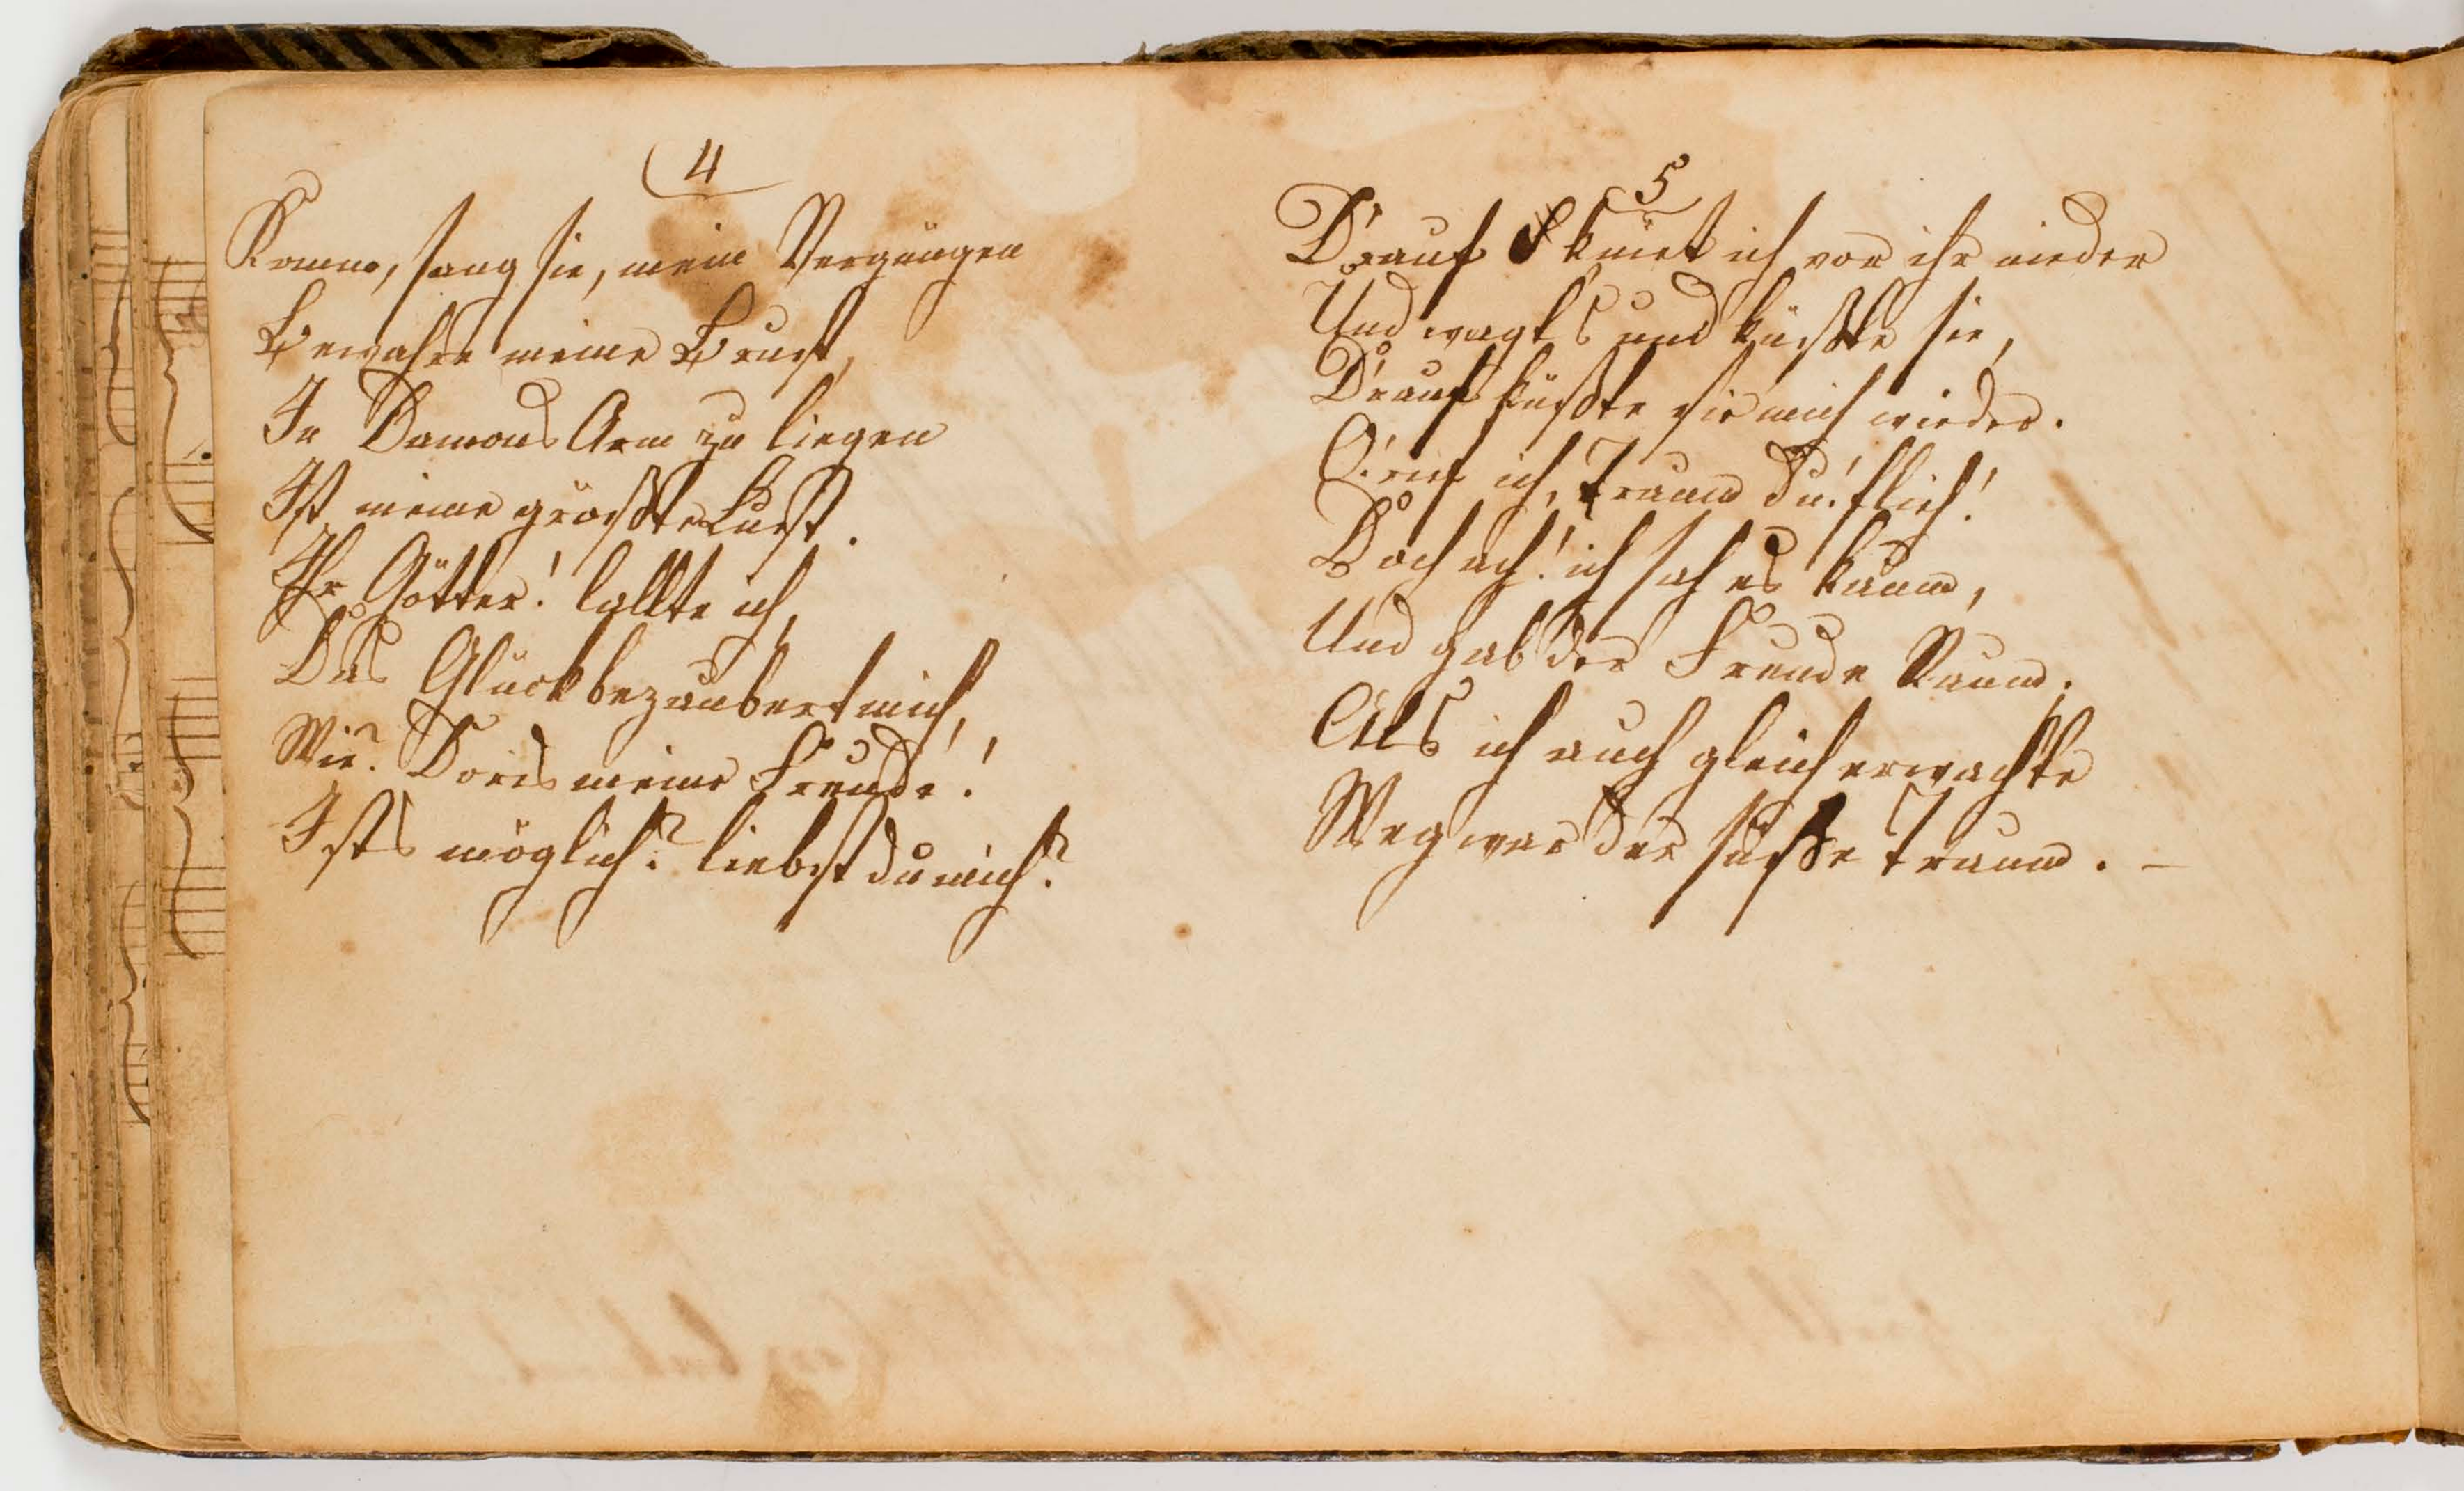 4
Komm, sang sie, mein Vergnügen
Bewahre meine Brust,
In Damons Arm zu liegen
Ist meine größte Lust.
Ihr Götter! lallte ich,
Das Glück bezaubert mich,
Wie? Doris meine Freude!
Ists möglich? liebst du mich?
5
Drauf kniet ich vor ihr nieder
Und wagts und küßte sie,
Drauf küßte sie mich wieder.
O! rief ich, Traum Du! flieh!
Doch ach! ich sah es kaum,
Und gab der Freude Raum.
Als ich auch gleich erwachte
Weg war der süße Traum. –